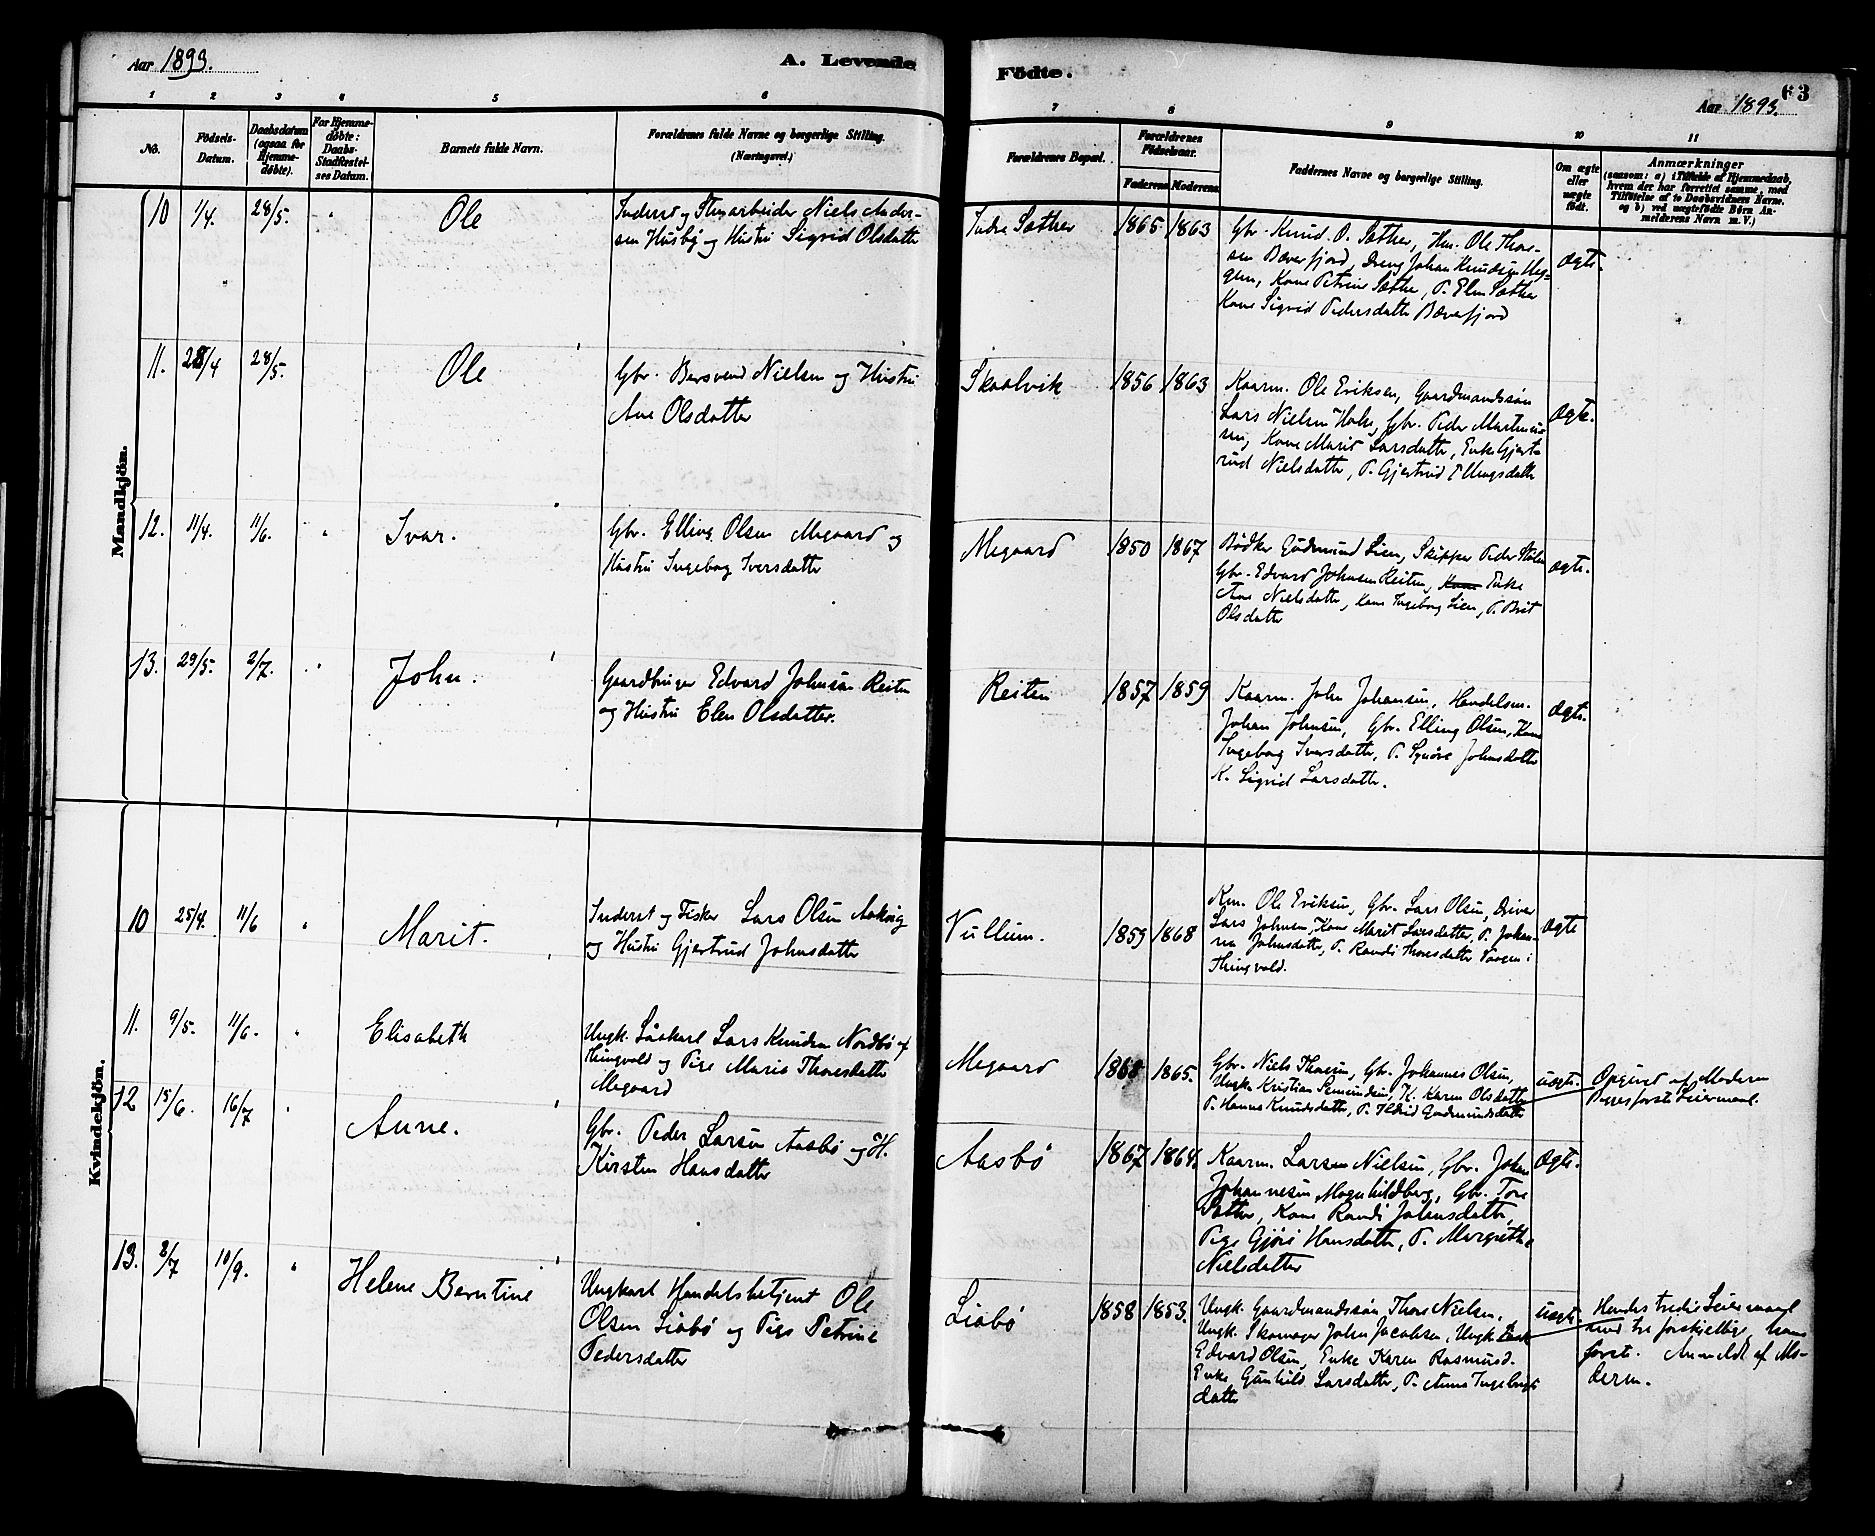 Aar 1893.
A. Levende
Födte.
Aar 1893.
63
1 2 3 4 5 6
7 8 9 10 11
No.
Födsels-
Datum.
Daabsdatum
(ogsaa for
Hjemme-
døbte).
For Hjemme-
døbte:
Daabs-
Stadfæstel-
ses Datum.
Barnets fulde Navn.
Forældrenes fulde Navne og borgerlige Stilling.
(Næringsvei.)
Forældrenes Bopæl.
Forældrenes
Födselsaar.
Faderens Moderens
Faddernes Navne og borgerlige Stilling.
Om ægte
eller
uægte
født.
Anmærkninger
(saasom: a) i Tilfælde af Hjemmedaab,
hvem der har forrettet samme, med
Tilføielse af to Daabsvidners Navne.
og b) ved uægtefødte Börn An-
melderens Navn m. V.)
Mandkjön.
10 1/4. 28/5. "
Ole
Inderst og Stenarbeider Niels Ander-
sen Husby og Hustru Sigrid Olsdatter
Indre Sæther
1865 1863
Gbr. Knud O. Sæther, Hm. Ole Thore-
sen Bæverfjord, Dreng Johan Knudsen Heg-
gem, Kone Petrine Sæther, P. Elen Sæther
Kone Sigrid Pedersdatter Bæverfjord
Ægte.
11. 28/4 28/5.
Ole
Gbr. Bersvend Nielsen og Hustru
Ane Olsdatter
Skaalvik
1856 1863
Kaarm. Ole Eriksen, Gaardmandssøn
Lars Nielsen Holm, Gbr. Peder Martinus-
sen, Kone Marit Larsdatter, Enke Gjert-
rud Nielsdatter, P. Gjertrud Ellingsdatter
Ægte.
12. 11/4. 11/6. "
Ivar.
Gbr. Elling Olsen Megaard og
Hustru Ingeborg Iversdatter
Megaard
1850 1867
Bødker Gudmund Lien, Skipper Peder Stolen
Gbr. Edvard Johnsen Reiten, Kone Enke
Ane Nielsdatter, Kone Ingeborg Lien, P. Brit
Olsdatter
Ægte.
13. 29/5. 2/7. "
John.
Gaardbruger Edvard Johnsen Reiten
og Hustru Elen Olsdatter.
Reiten
1857 1859
Kaarm. John Johansen, Handelsm.
Johan Johnsen, Gbr. Elling Olsen, Kone
Ingeborg Iversdatter, P. Synøve Johnsdatter
K. Sigrid Larsdatter.
Ægte.
Kvindekjön.
10 25/4. 11/6 "
Marit.
Inderst og Fisker Lars Olsen Aakvig
og Hustru Gjertrud Johnsdatter
Vullum.
1859 1868
Km. Ole Eriksen, Gbr. Lars Olsen, Driver
Lars Johnsen, Kone Marit Larsdatter, P. Johan-
na Johnsdatter, P. Randi Thoresdatter Vaagen i
Thingvold.
Ægte
11. 9/5. 11/6. "
Elisabeth
Ungk. Løskarl Lars Knudsen Nordbø af
Thingvold og Pige Maria Thoresdatter
Megaard
Megaard
1868 1865.
Gbr. Niels Thoresen, Gbr. Johannes Olsen,
Ungk. Kristian Semundsen, K. Karen Olsdatter
P. Hanna Knudsdatter, P. Ildrid Gudmundsdatter
Uægte.
Opgivet af Moderen
Begges første Leiermaal.
12 15/6. 16/7 "
Anne.
Gbr. Peder Larsen Aasbø og H.
Kirsten Hansdatter
Aasbø
1867 1864.
Kaarm. Larsen Nielsen, Gbr. Johan
Johannesen Magnhildberg, Gbr. Tore
Sæther, Kone Randi Johnsdatter,
Pige Gjøri Hansdatter, P. Margrethe
Nielsdatter
Ægte.
13. 2/7 10/9. "
Helene Berntine
Ungkarl Handelsbetjent Ole
Olsen Liabø og Pige Petrine
Pedersdatter
Liabø
1858 1853.
Ungk. Gaardmandssøn Thore Nielsen,
Ungk. Skomager John Jacobsen, Ungk.
Edvard Olsen, Enke Karen Rasmusd.
Enke Gunhild Larsdatter, P. Anna Ingebrigts
datter
Uægte.
Hendes tredie Leiermaal
med tre forskjellige, hans
første. Anmeldt af Mo-
deren.